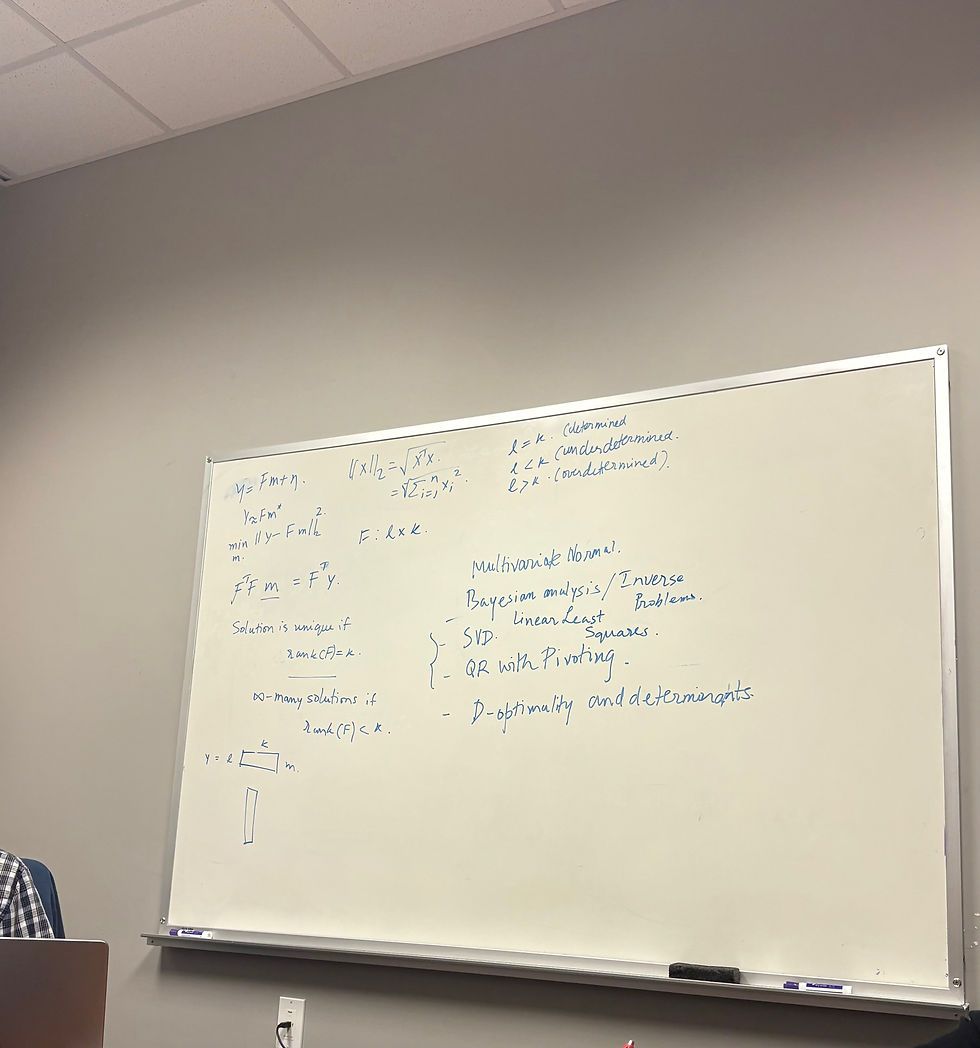 y = Fm + η.
y ≈ Fm*
min ‖y − Fm‖₂².
m.
FᵀF m = Fᵀy.
Solution is unique if
rank(F) = k.
∞-many solutions if
rank(F) < k.
k
y = l m.
‖x‖₂ = √xᵀx.
= √Σᵢ₌₁ⁿ xᵢ².
F : l × k.
l = k. (determined
l < k (underdetermined.
l > k. (overdetermined).
Multivariate Normal.
- Bayesian analysis / Inverse
Problems.
Linear Least
Squares.
- SVD.
- QR with Pivoting.
- D-optimality and determinants.